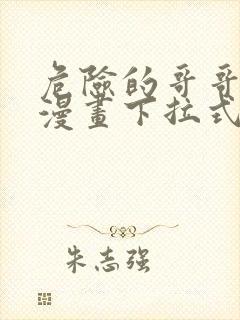 危險的哥哥
漫畫下拉式
朱志强